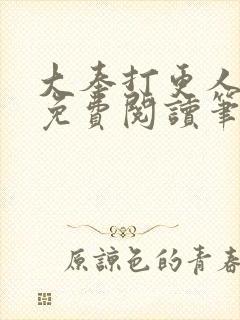 大奉打更人
免費閱讀筆
原諒色的青春